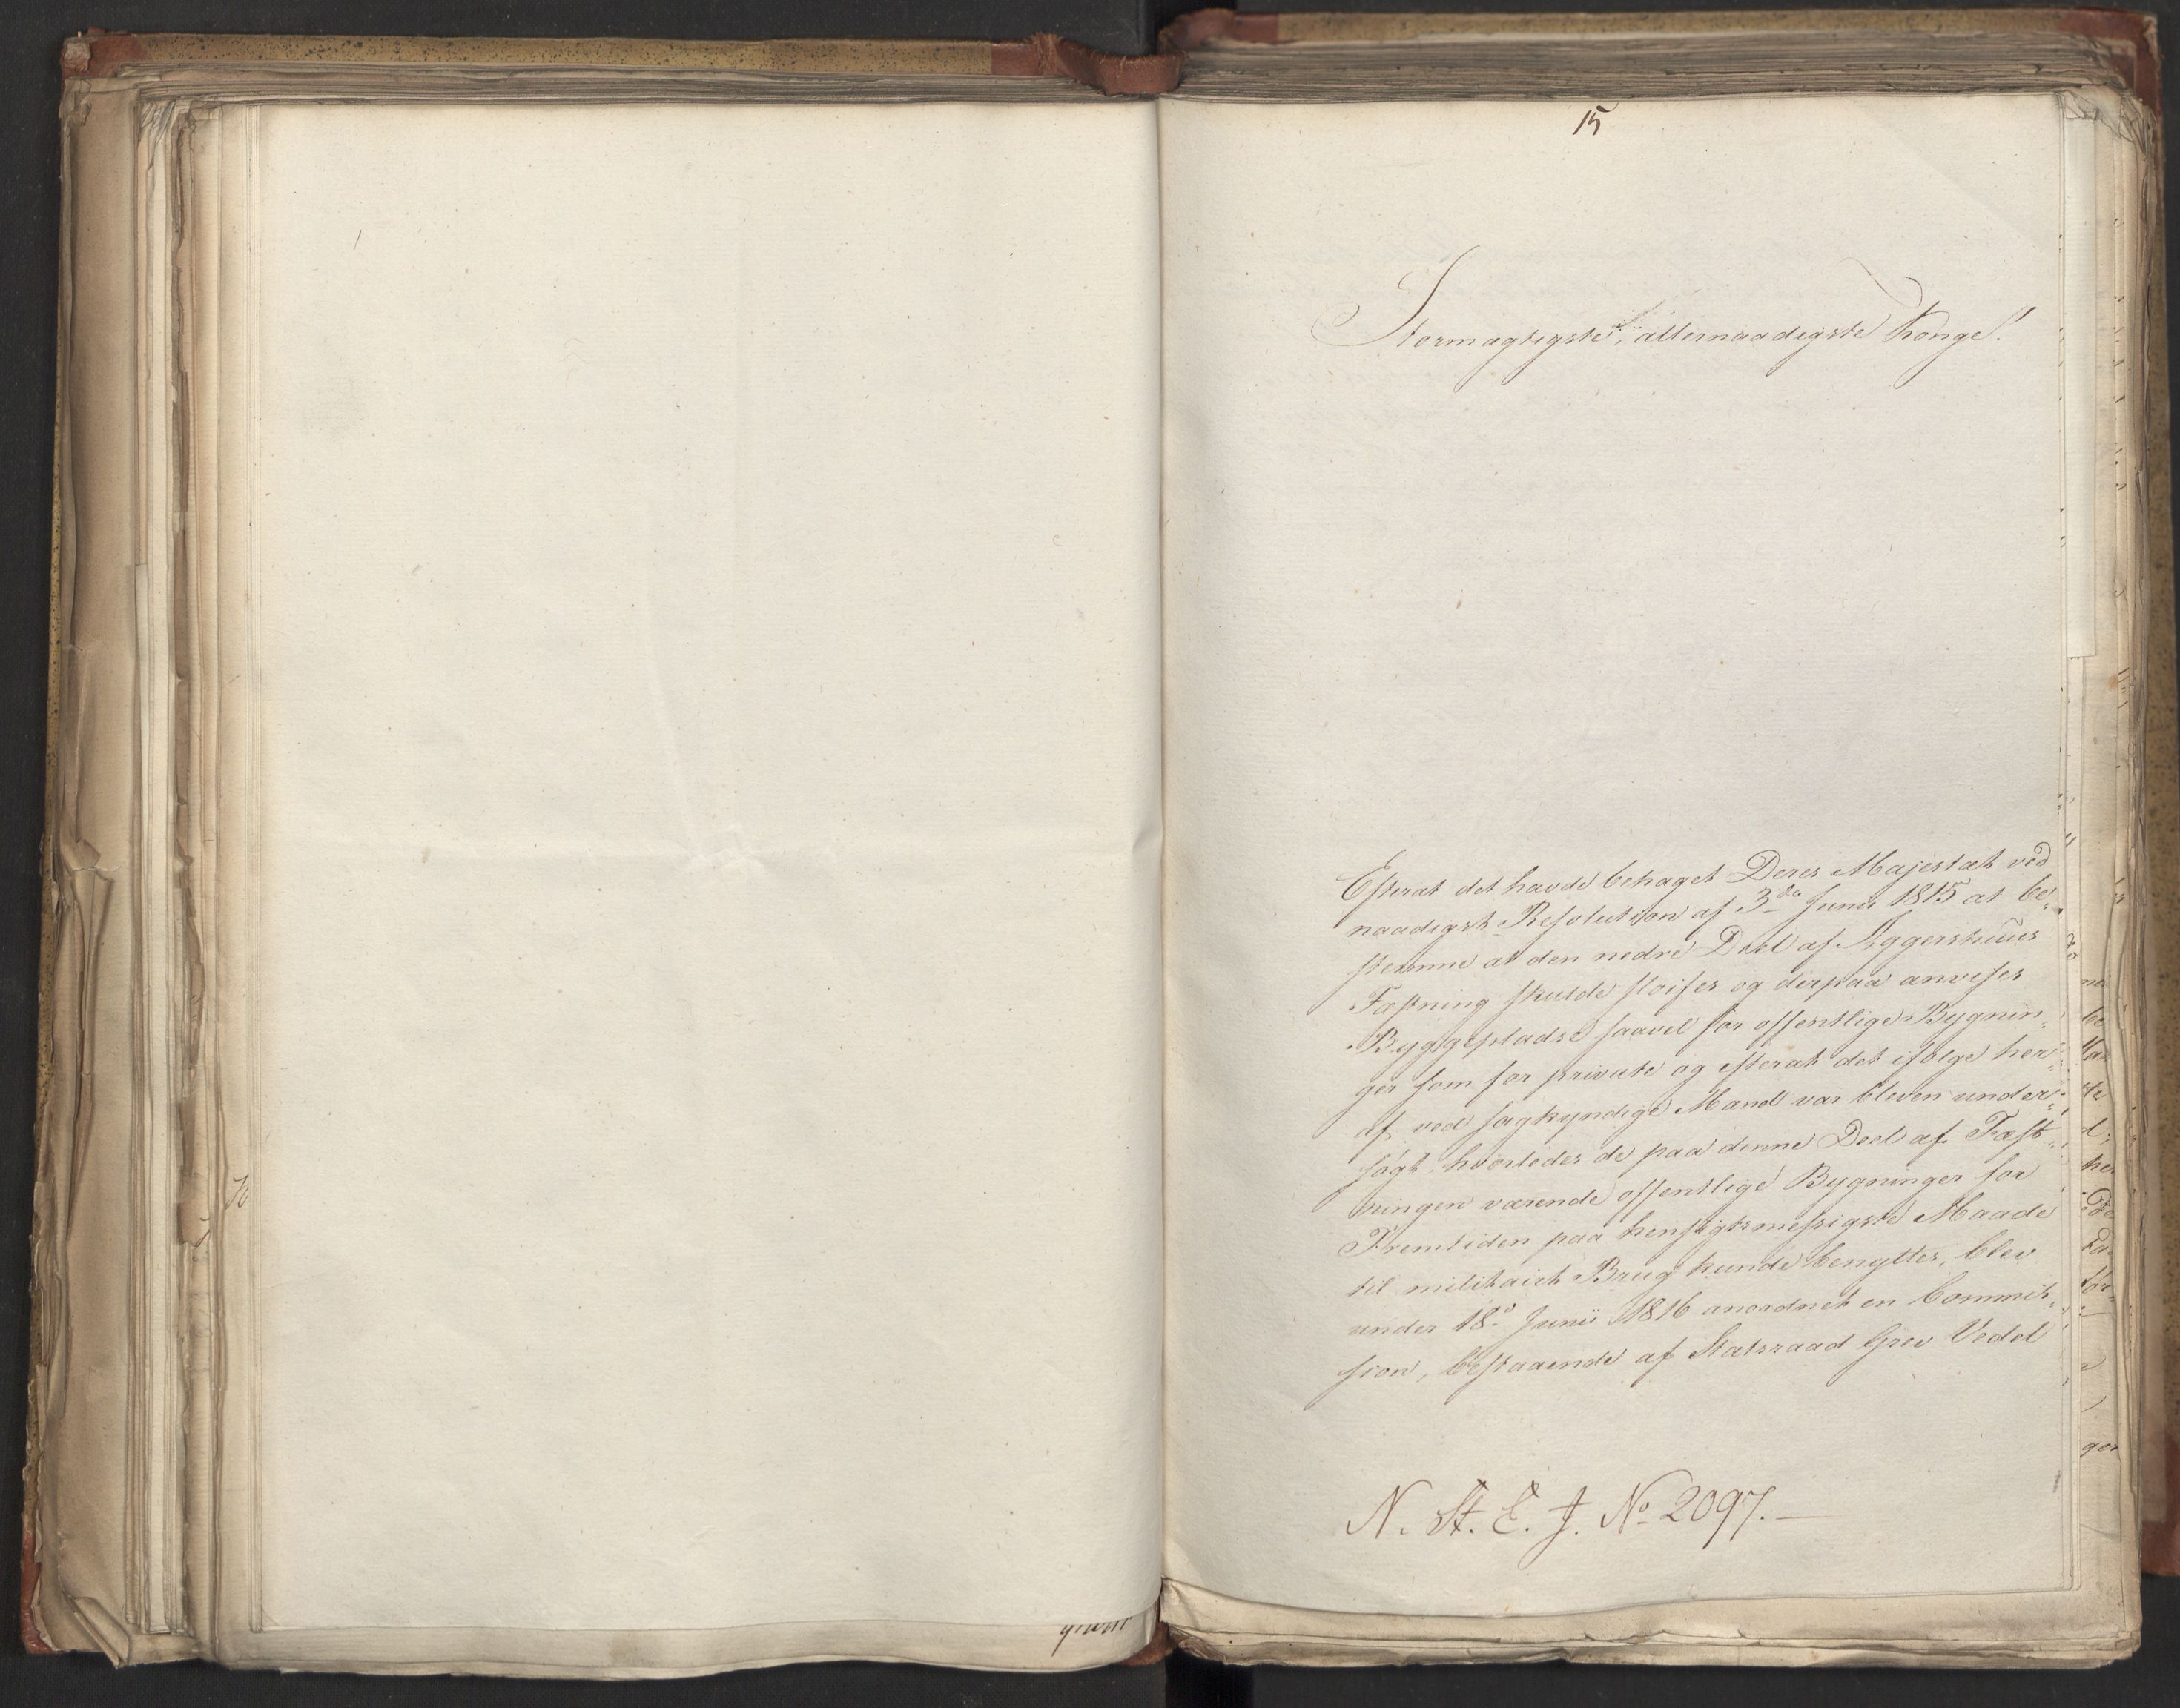 15
Stormægtigste, allernaadigste Konge!
Efterat det havde behaget Deres Majestæt ved
naadigst Resolution af 3die Junii 1815 at be„
stemme at den nedre Deel af Aggershuus
Fæstning skulde sløifes og derpaa anvises
Byggepladse saavel for offentlige Bygnin„
ger som for private og efterat det ifølge her„
af ved sagkyndige Mænd var bleven under„
søgt hvorledes de paa denne Deel af Fæst„
ningen værende offentlige Bygninger for
Fremtiden paa hensigtsmessigste Maade
til militairt Brug kunde benyttes, blev
under 18de Junii 1816 anordnet en Commis„
sion, bestaaende af Statsraad Grev Vedel
N. St. E. J. No 2097.